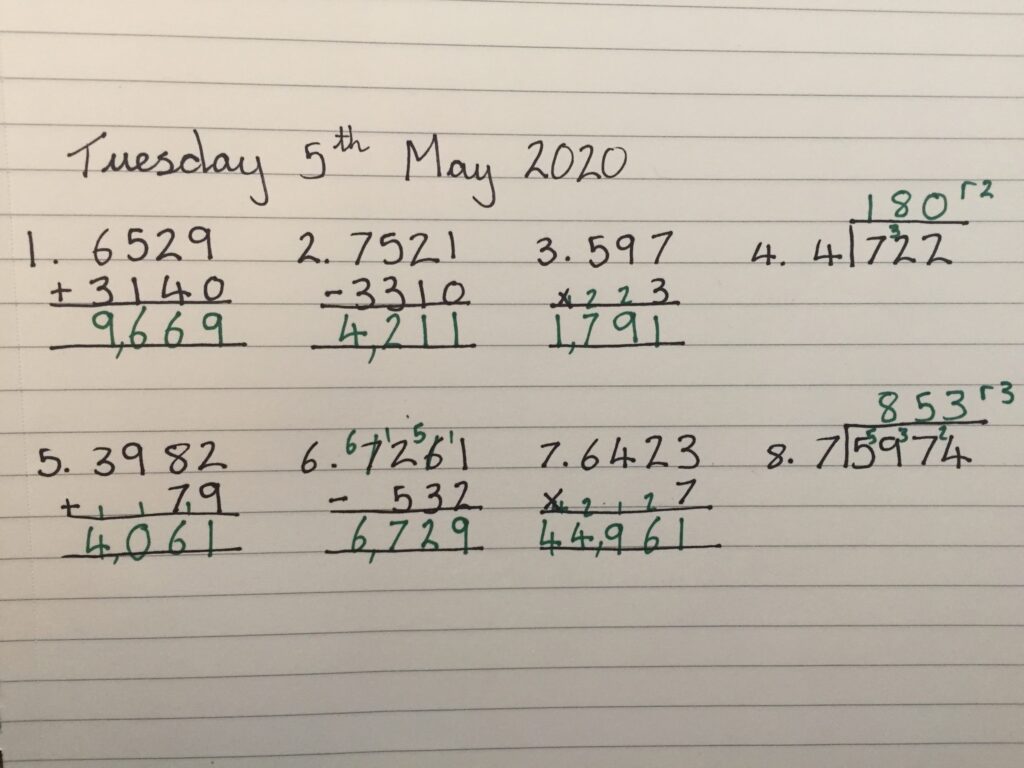 Tuesday 5th May 2020
180 r2
1. 6529 2. 7521 3. 597 4. 4 7³22
+3140 -3310 x 2 2 3
9,669 4,211 1,791
853 r3
5. 3982 6. ⁶7¹2⁵6¹1 7. 6423 8. 7 5⁵9³7²4
+ 1 1 7 1 9 - 532 x 4 2 1 2 7
4,061 6,729 44,961